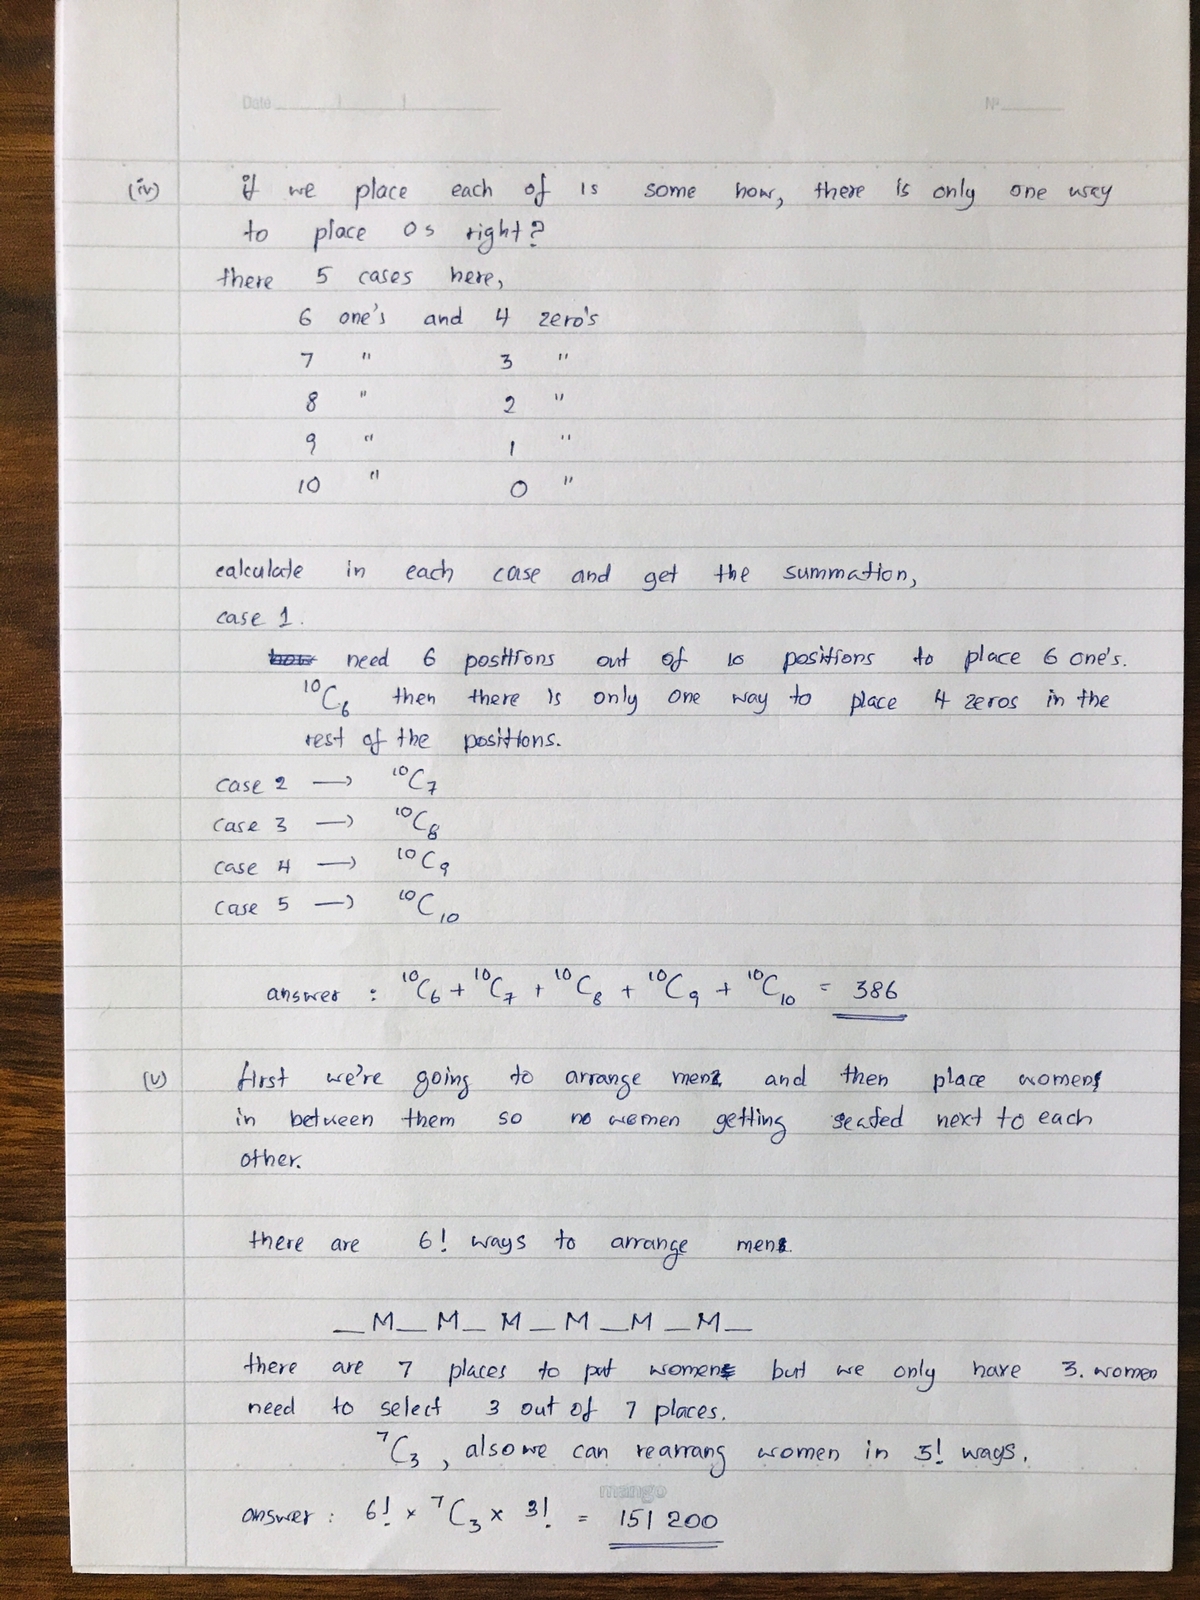 Date
Nº
(iv) if we place each of 1s some how, there is only one way
to place 0s right?
there 5 cases here,
6 one's and 4 zero's
7 " 3 "
8 " 2 "
9 " 1 "
10 " 0 "
calculate in each case and get the summation,
case 1.
need 6 positions out of 10 positions to place 6 one's.
¹⁰C₆ then there is only one way to place 4 zeros in the
rest of the positions.
case 2 → ¹⁰C₇
case 3 → ¹⁰C₈
case 4 → ¹⁰C₉
case 5 → ¹⁰C₁₀
answer : ¹⁰C₆ + ¹⁰C₇ + ¹⁰C₈ + ¹⁰C₉ + ¹⁰C₁₀ = 386
(v) first we're going to arrange men and then place women
in between them so no women getting seated next to each
other.
there are 6! ways to arrange men.
_M_M_M_M_M_M_
there are 7 places to put women but we only have 3. women
need to select 3 out of 7 places.
⁷C₃, also we can rearrang women in 3! ways.
mango
answer : 6! × ⁷C₃ × 3! = 151 200